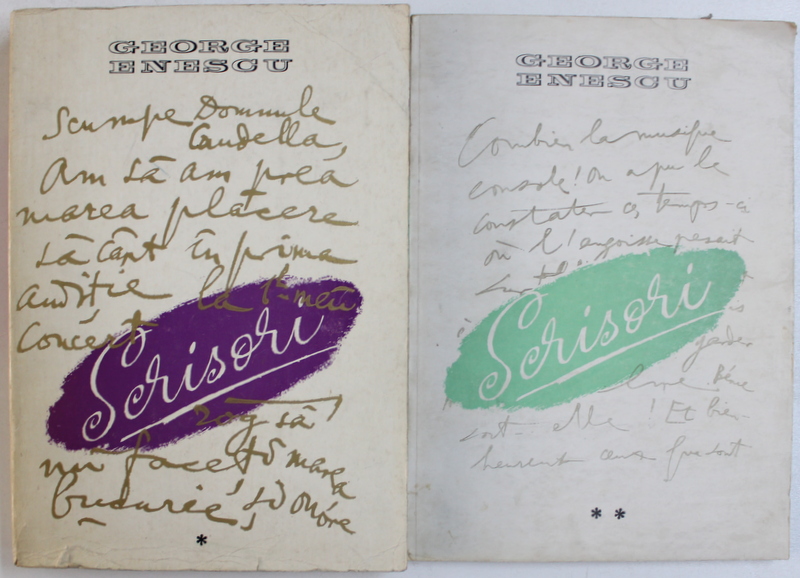 GEORGE
ENESCU
Scumpe Domnule
Caudella,
Am să am prea
marea plăcere
să cânt în prima
audiție la 1-ul meu
Concert
Scrisori
rog să
mi faceți marea
bucurie, și onóre
*
GEORGE
ENESCU
Combien la musique
console! On a pu le
constater ces temps-ci
où l'angoisse pesait
Scrisori
garder
Bénie
soit-elle! Et bien-
heureux ceux qui sont
* *